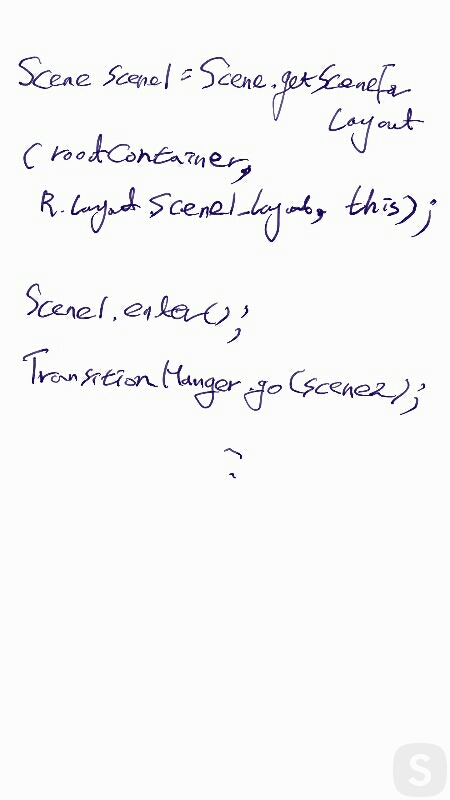 Scene scene1 = Scene.getSceneFor
Layout
(rootContainer,
R.layout.scene1_layout, this);
Scene1.enter();
TransitionManger.go(scene2);
?
S